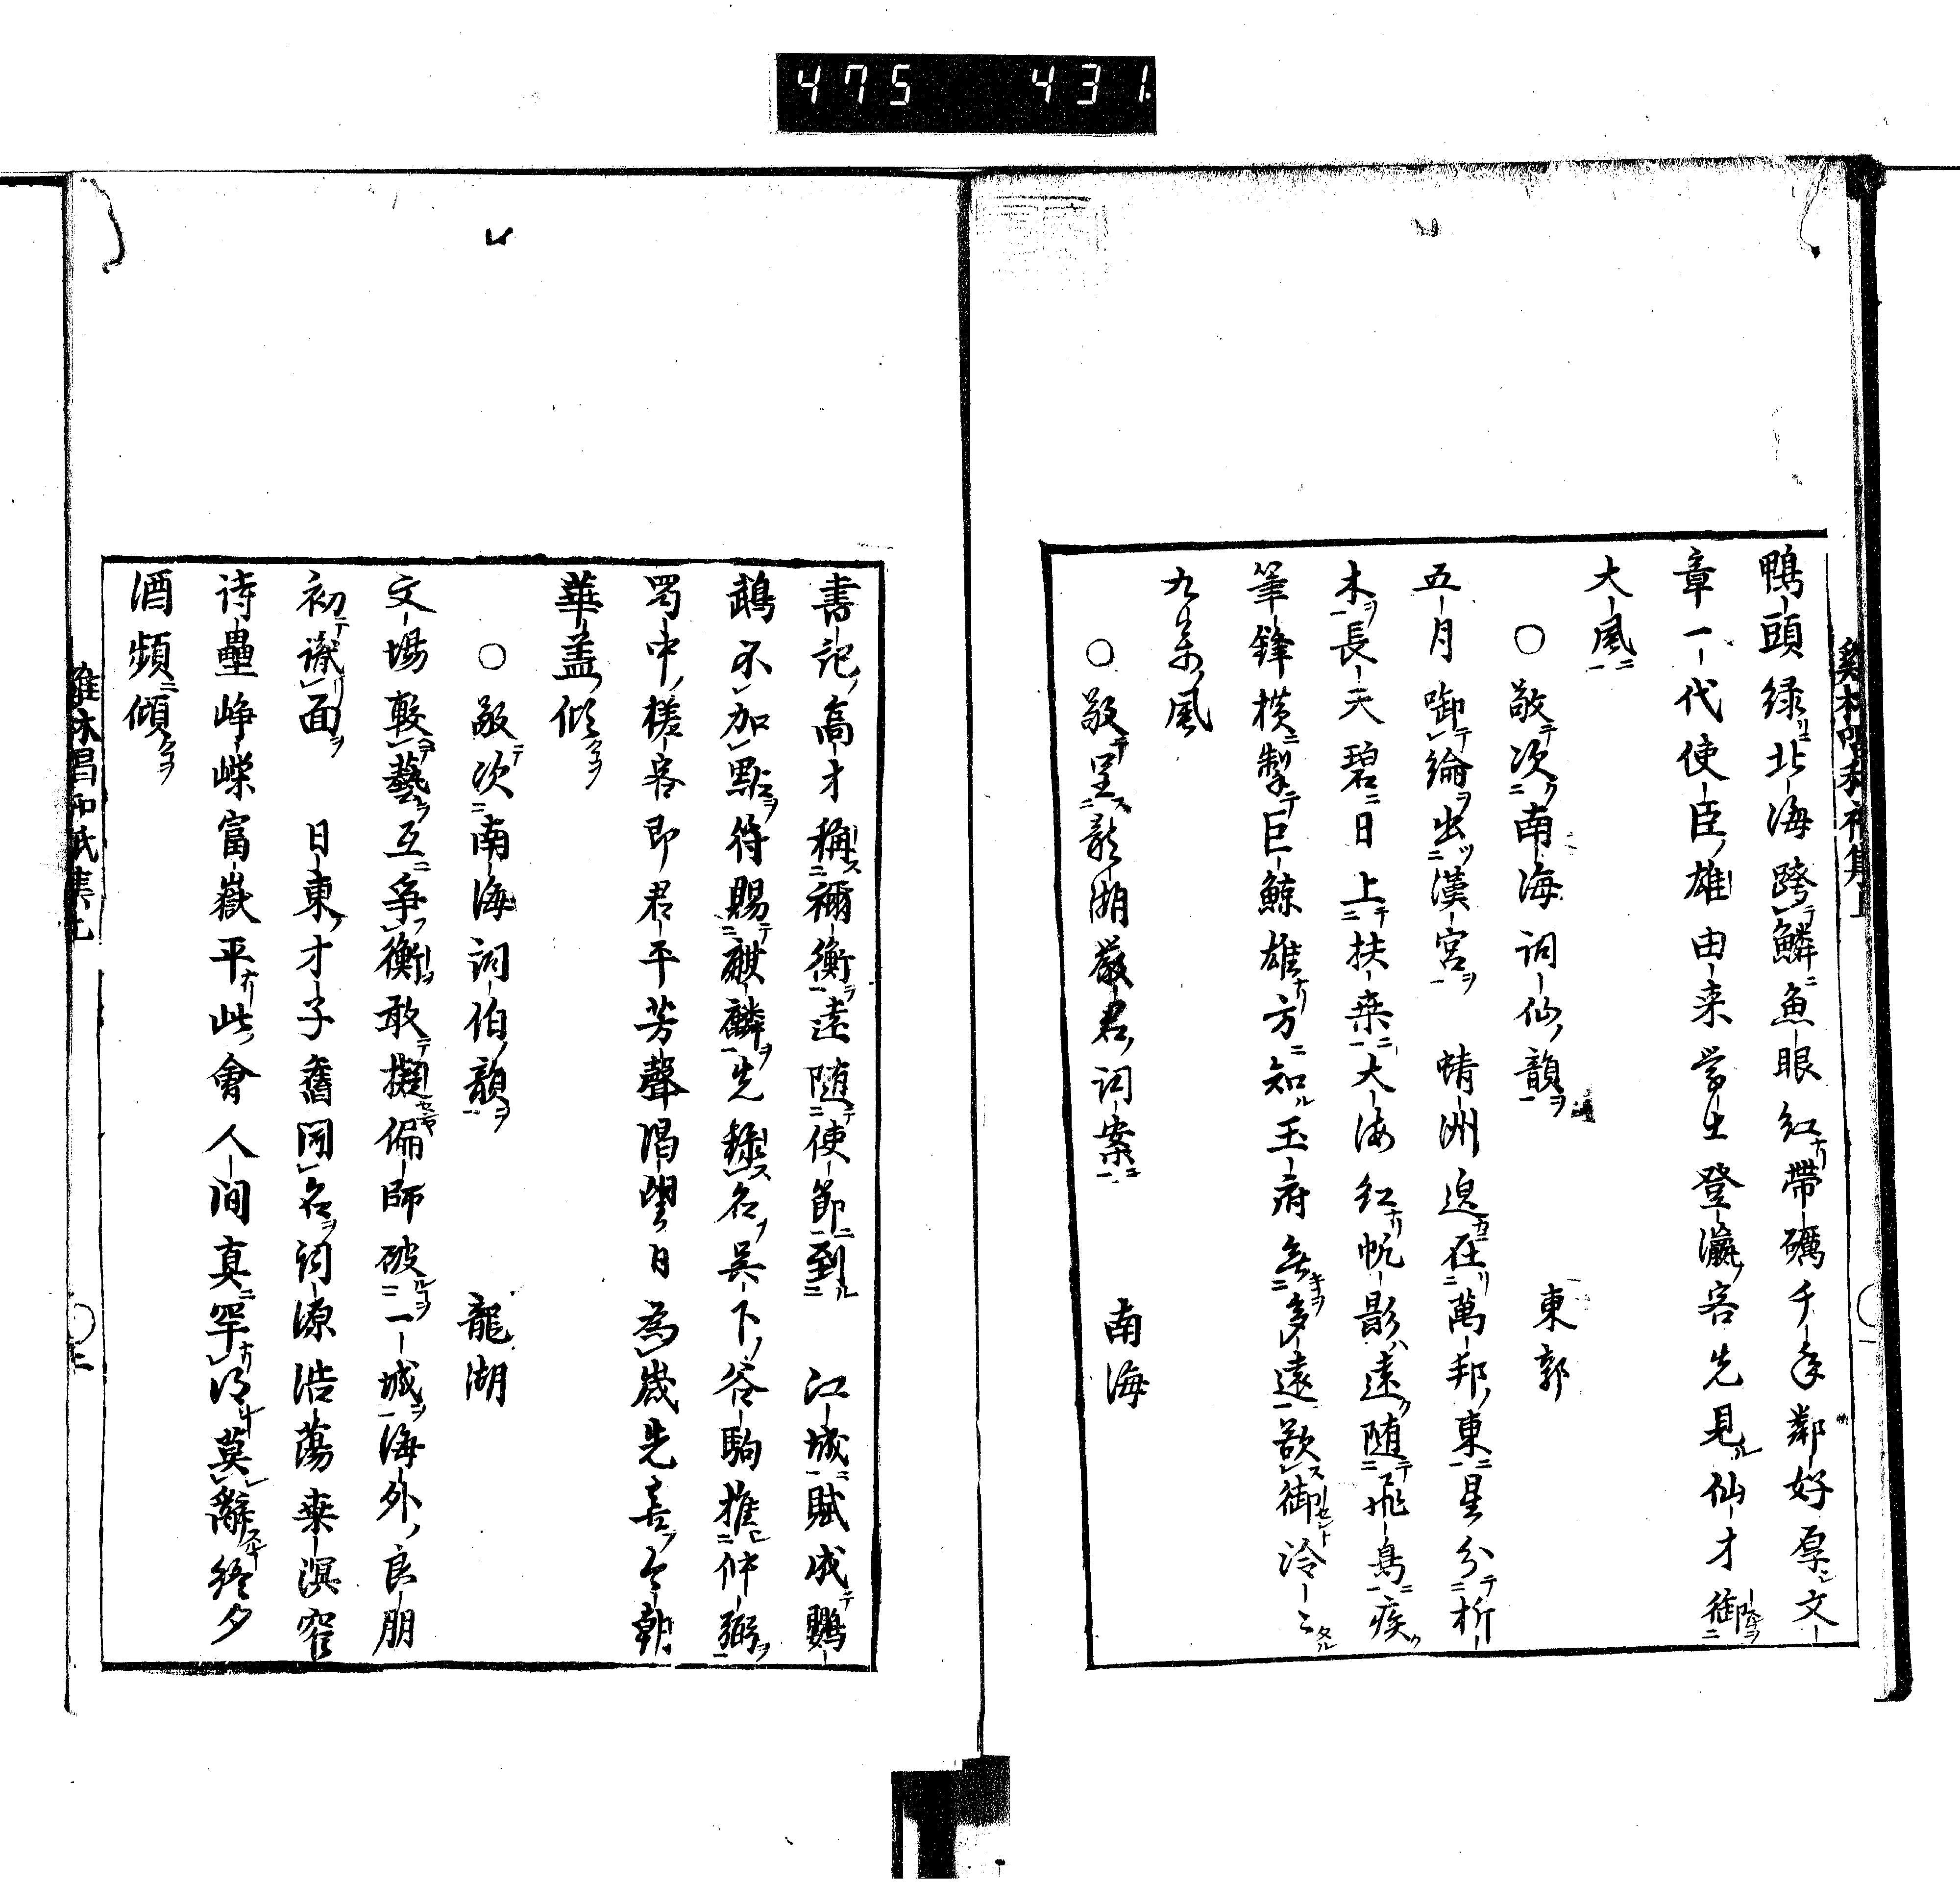 475 431
鴨頭緑北海跨鱗魚眼紅帶礪千年鄰好厚文
章一代使臣雄由来蒙士登瀛客先見仙才御
大風
○敬次南海詞仙韻 東郭
五月啣綸出漢宮 蜻洲逈在萬邦東星分析
木長天碧日上扶桒大海紅帆影遠随飛鳥疾
筆鋒横掣巨鯨雄方知玉府無多遠欲御泠〻
九萬風
○敬呈龍湖嚴君詞案 南海
書記高才稱禰衡遠随使節到 江城賦成鸚
鵡不加點符賜麒麟先録名呉下谷駒推仲弼
蜀中槎客即君平芳聲渇望日為歳先喜今朝
華盖傾
○敬次南海詞伯韻 龍湖
文場較藝互爭衡敢擬偏師破一城海外良朋
初識面 日東才子舊同名詞源浩蕩桒溟窄
詩壘崢嶸富嶽平此會人間真罕得莫辭終夕
酒頻傾